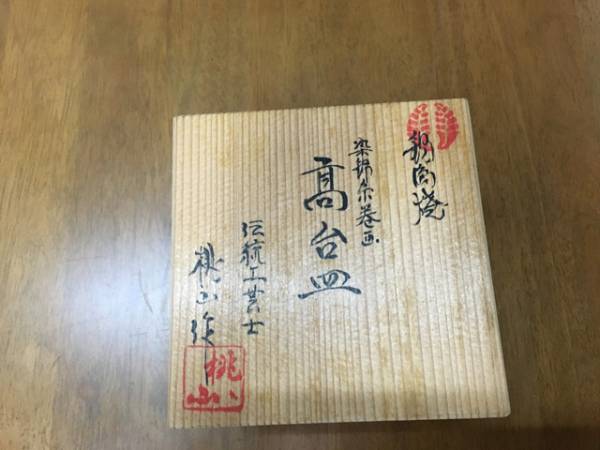 鍋島焼
染錦糸巻画
髙台皿
伝統工芸士
桃山作
桃山